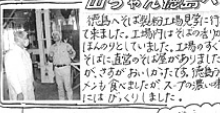 山ちゃん徳島へ
徳島へそば製粉工場見学に行
て来ました。工場内はそばの香り
ほんのりとしていました。工場のすぐ
そばに直営のそば屋がありました
が、さすがおいしかったです。徳島ラ
メンも食べましたが、スープの濃い
にはびっくりしました。